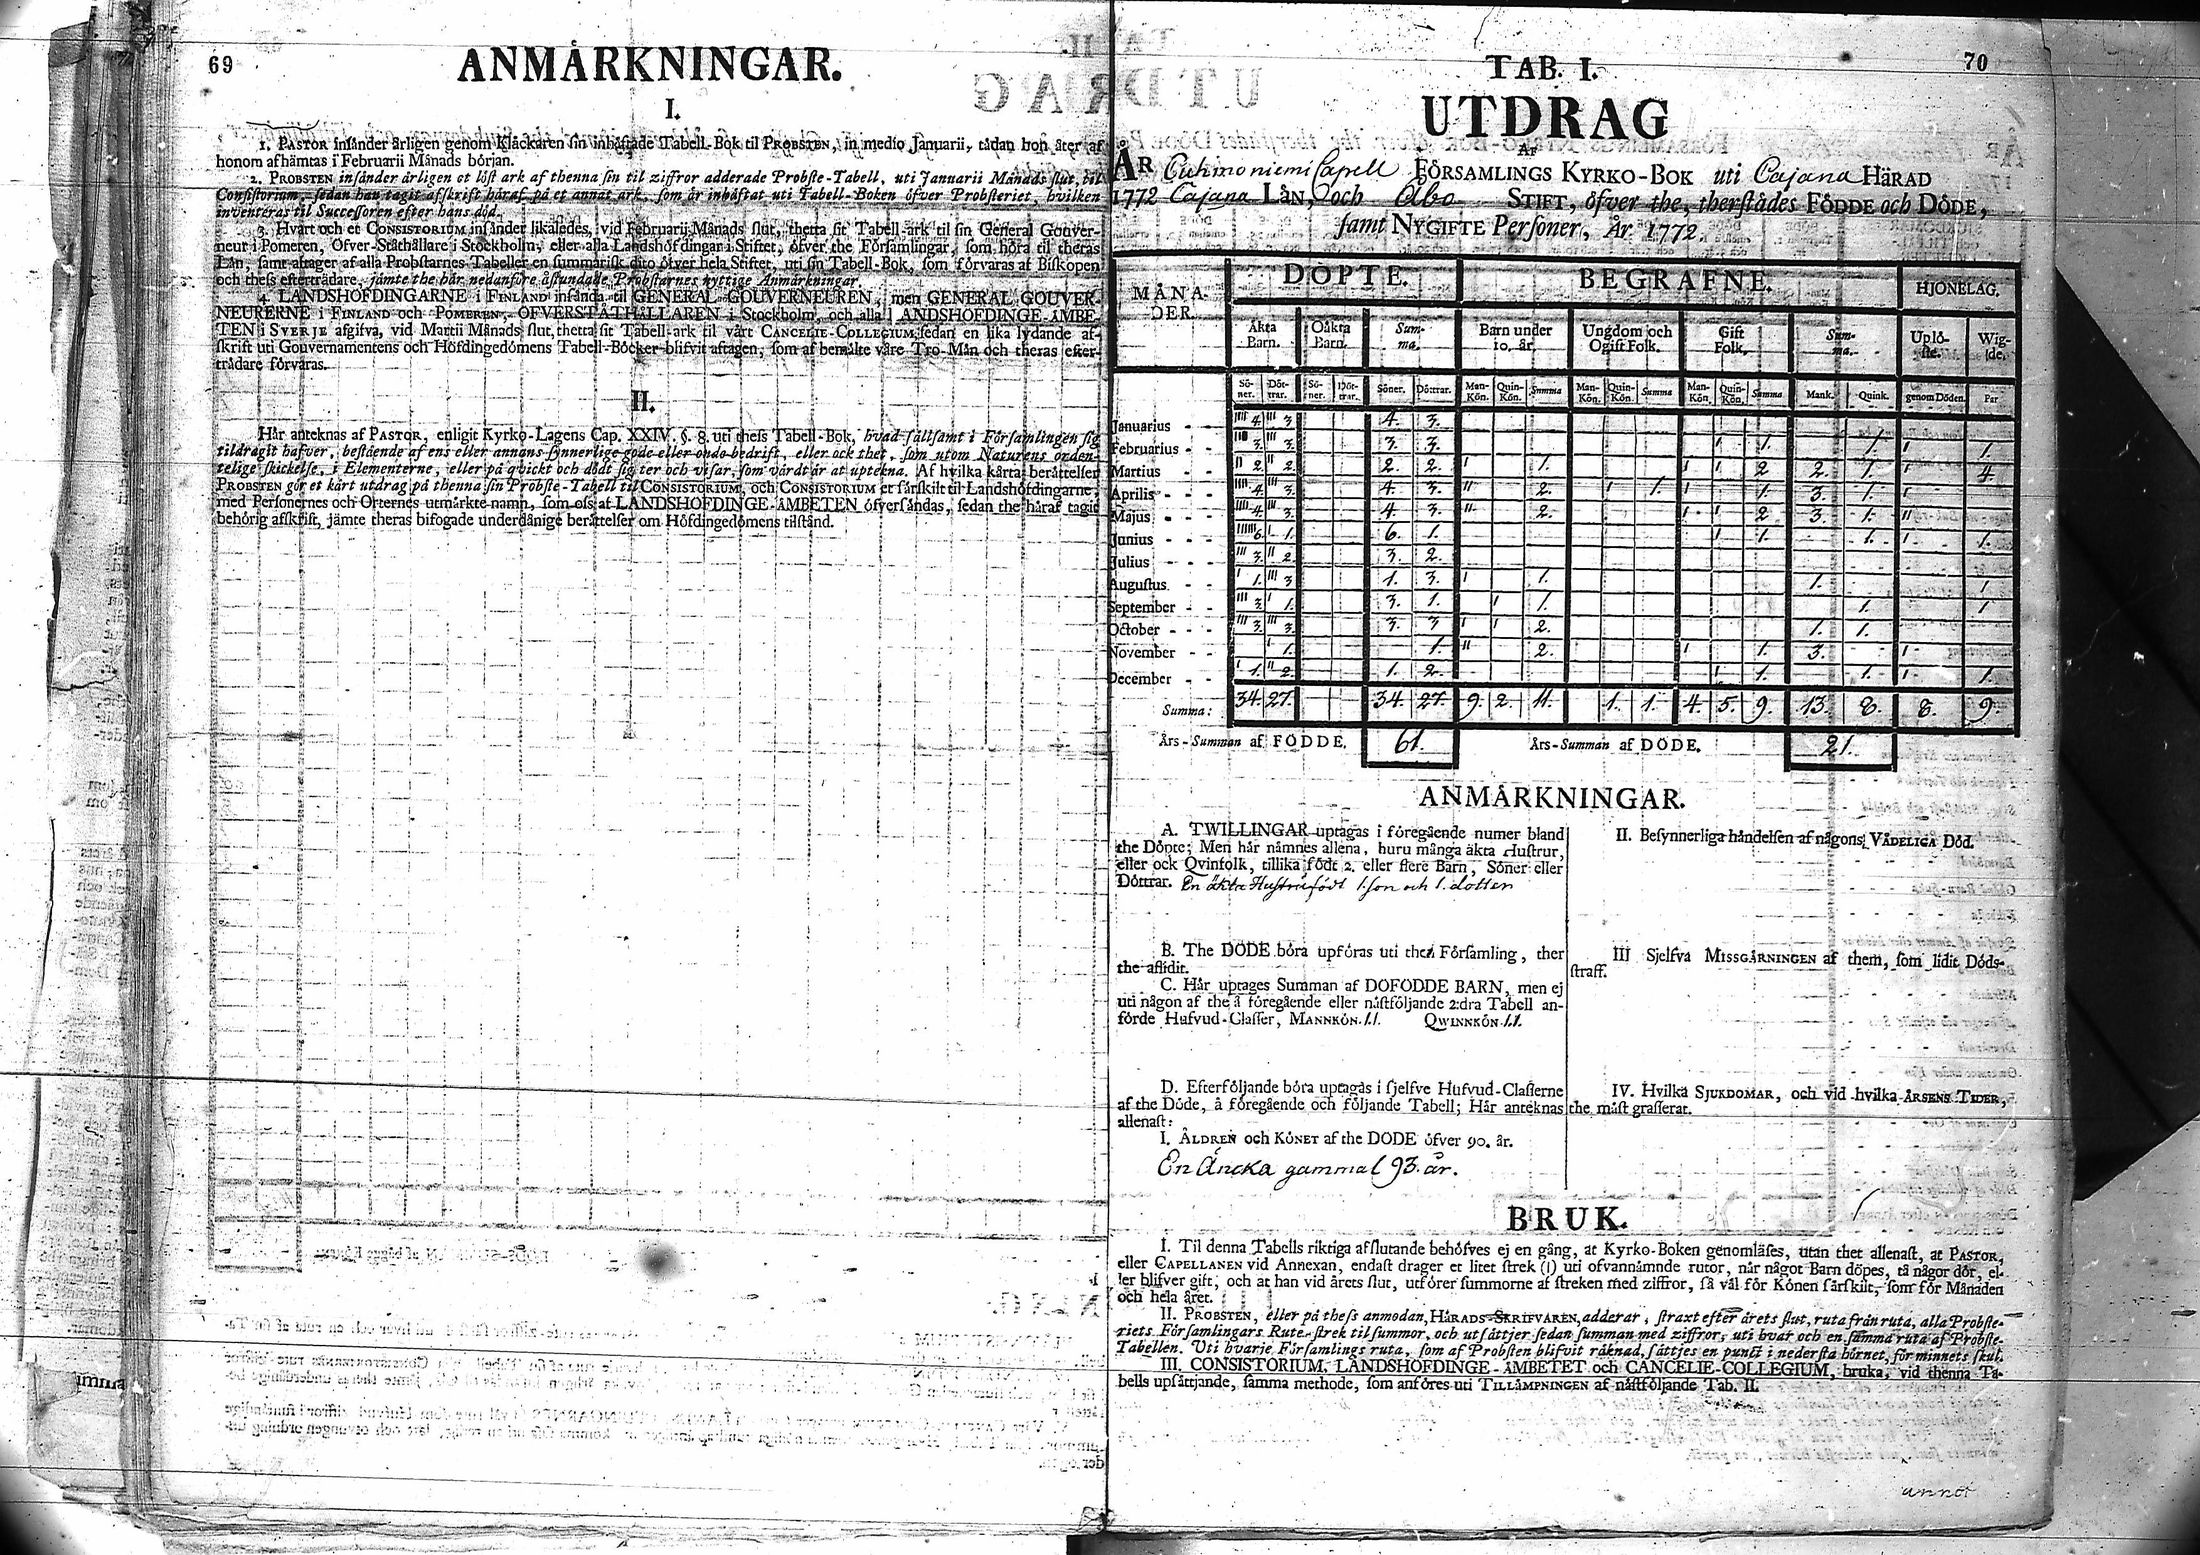 69
ANMÄRKNINGAR.
I.
1. PASTOR insänder årligen genom Klåckaren sin inhäftade Tabell-Bok til PROBSTEN, in medio Januarii, tådan hon åter af
honom afhämtas i Februarii Månads början.
2. PROBSTEN insänder årligen et löst ark af thenna sin til ziffror adderade Probste-Tabell, uti Januarii Månads slut, til
Consistorium, sedan han tagit afskrift häraf på et annat ark, som är inhäftat uti Tabell-Boken öfver Probsteriet, hvilken
inventeras til Successoren efter hans död.
3. Hvart och et CONSISTORIUM insänder likaledes, vid Februarii Månads slut, thetta sit Tabell-ark til sin General Gouver-
neur i Pomeren, Öfver-Ståthållare i Stockholm, eller alla Landshöfdingar i Stiftet, öfver the Församlingar, som höra til theras
Län, samt aftager af alla Probstarnes Tabeller en summarisk dito öfver hela Stiftet, uti sin Tabell-Bok, som förvaras af Biskopen
och thess efterträdare, jämte the här nedanföre åstundade Probstarnes nyttige Anmärkningar.
4. LANDSHÖFDINGARNE i FINLAND insända til GENERAL-GOUVERNEUREN, men GENERAL GOUVER-
NEURERNE i FINLAND och POMEREN, ÖFVERSTÅTHÅLLAREN i Stockholm, och alla LANDSHÖFDINGE-ÄMBE-
TEN i SVERJE afgifva, vid Martii Månads slut, thetta sit Tabell-ark til vårt CANCELIE-COLLEGIUM, sedan en lika lydande af-
skrift uti Gouvernamentens och Höfdingedömens Tabell-Böcker blifvit aftagen, som af bemälte våre Tro-Män och theras efter-
trädare förvaras.
II.
Här anteknas af PASTOR, enligit Kyrko-Lagens Cap. XXIV. §. 8. uti thess Tabell-Bok, hvad sällsamt i Församlingen sig
tildragit hafver, bestående af ens eller annans synnerlige gode eller onde bedrift, eller ock thet, som utom Naturens orden-
telige skickelse, i Elementerne, eller på qvickt och dödt sig ter och visar, som värdt är at uptekna. Af hvilka kårta berättelser
PROBSTEN gör et kårt utdrag på thenna sin Probste-Tabell til CONSISTORIUM, och CONSISTORIUM et särskilt til Landshöfdingarne,
med Personernes och Orternes utmärkte namn, som oss af LANDSHÖFDINGE-ÄMBETEN öfversändas, sedan the häraf tagit
behörig afskrift, jämte theras bifogade underdånige berättelser om Höfdingedömens tilstånd.
70
TAB. I.
UTDRAG
AF
ÅR Cuhmoniemi Capell FÖRSAMLINGS KYRKO-BOK uti Cajana HÄRAD
1772 Cajana LÄN, och Åbo STIFT, öfver the, therstädes FÖDDE och DÖDE,
samt NYGIFTE Personer, År 1772.
MÅNA-DER. DÖPTE. BEGRAFNE. HJONELAG.
Äkta Barn. Oäkta Barn. Sum-ma. Barn under 10. år. Ungdom och Ogift Folk. Gift Folk. Sum-ma. Uplö-ste. Wig-de.
Sö-ner. Döt-trar. Sö-ner. Döt-trar. Söner. Döttrar. Man-Kön. Quin-Kön. Summa Man-Kön. Quin-Kön. Summa Man-Kön. Quin-Kön. Summa Mank. Quink. genom Döden. Par
Januarius - - IIII 4. III 3 4. 3.
Februarius - - III 3. III 3. 3. 3. I 1. 1. I 1.
Martius - - II 2. II 2. 2. 2. I 1. I I 2 2. 1. I 4.
Aprilis - - - IIII 4. III 3. 4. 3. II 2. I 1. I 1. 3. 1. I
Majus - - - IIII 4. III 3. 4. 3. II 2. I I 2 3. 1. II
Junius - - - IIIIII 6. I 1. 6. 1. I 1. 1. I 1.
Julius - - - III 3. II 2. 3. 2.
Augustus - - I 1. III 3 1. 3. I 1. 1. 1
September - - III 3. I 1. 3. 1. I 1. 1. 1
October - - - III 3. III 3. 3. 3 I I 2. 1. 1.
November - - I 1. 1. II 2. I 1. 3. I
December - - I 1. II 2. 1. 2. I 1. 1. I 1.
Summa: 34. 27. 34. 27. 9. 2. 11. 1. 1. 4. 5. 9. 13. 8. 8. 9.
Års-Summan af FÖDDE. 61. Års-Summan af DÖDE. 21.
ANMÄRKNINGAR.
A. TWILLINGAR uptagas i föregående numer bland
the Döpte; Men här nämnes allena, huru många äkta Hustrur,
eller ock Qvinfolk, tillika födt 2. eller flere Barn, Söner eller
Döttrar. En äkta Hustru födt 1. son och 1. dotter
B. The DÖDE böra upföras uti then Församling, ther
the aflidit.
C. Här uptages Summan af DÖDFÖDDE BARN, men ej
uti någon af the å föregående eller nästföljande 2:dra Tabell an-
förde Hufvud-Classer, MANNKÖN. 1.1. QWINNKÖN. 1.1.
D. Efterföljande böra uptagas i sjelfve Hufvud-Classerne
af the Döde, å föregående och följande Tabell; Här anteknas
allenast:
I. ÅLDREN och KÖNET af the DÖDE öfver 90. år.
En Äncka gammal 93. år.
II. Besynnerliga händelsen af någons VÅDELIGA Död.
III Sjelfva MISSGÄRNINGEN af them, som lidit Döds-
straff.
IV. Hvilka SJUKDOMAR, och vid hvilka ÅRSENS TIDER,
the mäst grasserat.
BRUK.
I. Til denna Tabells riktiga afslutande behöfves ej en gång, at Kyrko-Boken genomläses, utan thet allenast, at PASTOR,
eller CAPELLANEN vid Annexan, endast drager et litet strek (I) uti ofvannämnde rutor, när något Barn döpes, tå någor dör, el-
ler blifver gift, och at han vid årets slut, utförer summorne af streken med ziffror, så väl för Könen särskilt, som för Månaden
och hela året.
II. PROBSTEN, eller på thess anmodan, HÄRADS-SKRIFVAREN, adderar, straxt efter årets slut, ruta från ruta, alla Probste-
riets Församlingars Rute-strek til summor, och utsättjer sedan summan med ziffror, uti hvar och en samma ruta af Probste-
Tabellen. Uti hvarje Församlings ruta, som af Probsten blifvit räknad, sättjes en punct i nedersta hörnet, för minnets skul.
III. CONSISTORIUM, LANDSHÖFDINGE-ÄMBETET och CANCELIE-COLLEGIUM, bruka, vid thenna Ta-
bells upsättjande, samma methode, som anföres uti TILLÄMPNINGEN af nästföljande Tab. II.